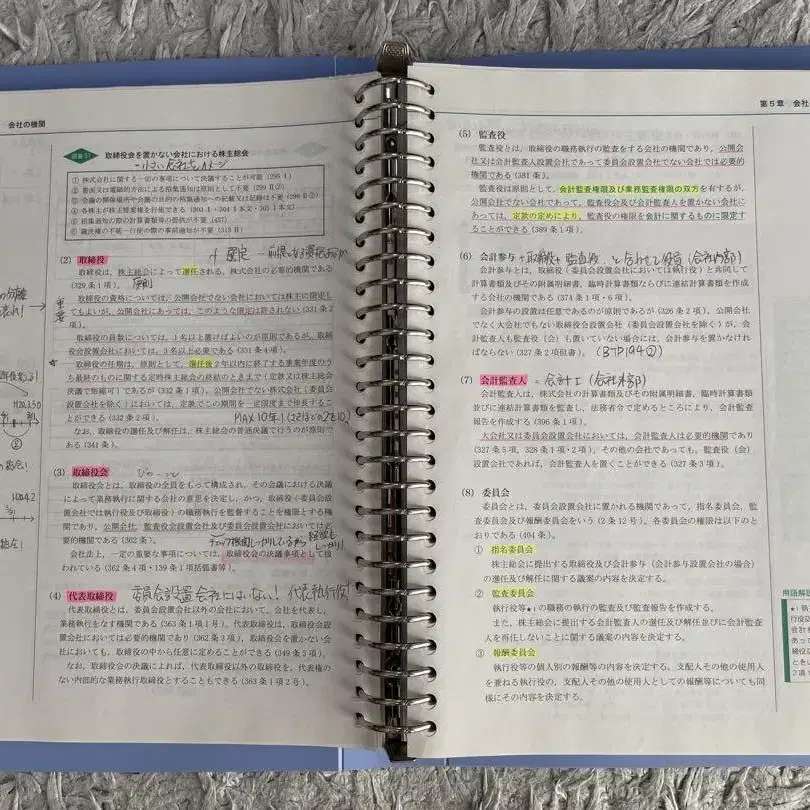 会社の機関
取締役会を置かない会社における株主総会
① 株式会社に関する一切の事項について決議することが可能（295Ⅰ）
② 書面又は電磁的方法による招集通知は原則として不要（299Ⅱ②）
③ 会議の開催場所や会議の目的の招集通知への記載又は記録は不要（299Ⅱ・Ⅲ）
④ 各株主が株主提案権を行使できる（303Ⅰ・304Ⅰ本文・305Ⅰ本文）
⑤ 招集通知の際の計算書類等の提供が不要（437）
⑥ 議決権の不統一行使の際の事前通知が不要（313Ⅱ）
(2) 取締役
取締役は，株主総会によって選任される，株式会社の必要的機関である
（329条1項）。 原則
取締役の資格については，公開会社でない会社においては株主に限定し
てもよいが，公開会社にあっては，このような限定は許されない（331条2
項）。
重要
取締役の員数については，1名以上置けばよいのが原則であるが，取締
役会設置会社においては，3名以上必要である（331条4項）。
取締役の任期は，原則として，選任後2年以内に終了する事業年度のう
ち最終のものに関する定時株主総会の終結のときまで（定款又は株主総会
決議で短縮可）であるが（332条1項），公開会社でない株式会社（委員会
設置会社を除く）においては，定款でこの期間を一定限度まで伸長するこ
とができる（332条2項）。 MAX 10年！
なお，取締役の選任及び解任は，株主総会の普通決議で行うのが原則で
ある（341条）。
(3) 取締役会
取締役会とは，取締役の全員をもって構成され，その会議における決議
によって業務執行に関する会社の意思を決定し，かつ，取締役（委員会設
置会社では執行役及び取締役）の職務執行を監督することを権限とする機
関であり，公開会社，監査役会設置会社及び委員会設置会社においては必
要的機関である（362条）。
会社法上，一定の重要な事項については，取締役会の決議事項として扱
われている（362条4項・139条1項括弧書等）。
(4) 代表取締役 委員会設置会社にはいない！代表執行役！
代表取締役とは，委員会設置会社以外の会社において，会社を代表し，
業務執行をなす機関である（363条1項1号）。代表取締役は，取締役会設
置会社においては必要的機関であり（362条3項），取締役会を置かない会
社においても，取締役の中から任意に定めることができる（349条3項）。
なお，取締役会の決議によれば，代表取締役以外の取締役を，代表権の
ない内部的な業務執行取締役とすることもできる（363条1項2号）。
第5章 会社
(5) 監査役
監査役とは，取締役の職務執行の監査をする会社の機関であり，公開会
社又は会計監査人設置会社であって委員会設置会社でない会社では必要的
機関である（381条）。
監査役は原則として，会計監査権限及び業務監査権限の双方を有するが，
公開会社でない会社であって，監査役会及び会計監査人を置かない会社に
あっては，定款の定めにより，監査役の権限を会計に関するものに限定す
ることができる（389条1項）。
(6) 会計参与 +取締役+監査役 と合わせて役員（会社内部）
会計参与とは，取締役（委員会設置会社においては執行役）と共同して
計算書類及びその附属明細書，臨時計算書類ならびに連結計算書類を作成
する会社の機関である（374条1項・6項）。
会計参与の設置は任意であるのが原則であるが（326条2項），公開会社
でなく大会社でもない取締役会設置会社（委員会設置会社を除く）が，会
計監査人も監査役（会）も置いていない場合には，会計参与を置かなけれ
ばならない（327条2項但書）。
(7) 会計監査人 = 会計士（会社外部）
会計監査人は，株式会社の計算書類及びその附属明細書，臨時計算書類
並びに連結計算書類を監査し，法務省令で定めるところにより，会計監査
報告を作成する（396条1項）。
大会社又は委員会設置会社においては，会計監査人は必要的機関であり
（327条5項，328条1項・2項），その他の会社であっても，監査役（会）
設置会社であれば，会計監査人を置くことができる（327条3項）。
(8) 委員会
委員会とは，委員会設置会社に置かれる機関であって，指名委員会，監
査委員会及び報酬委員会をいう（2条12号）。各委員会の権限は以下のと
おりである（404条）。
① 指名委員会
株主総会に提出する取締役及び会計参与（会計参与設置会社の場合）
の選任及び解任に関する議案の内容を決定する。
② 監査委員会
執行役等★1の職務の執行の監査及び監査報告を作成する。
また，株主総会に提出する会計監査人の選任及び解任並びに会計監査
人を再任しないことに関する議案の内容を決定する。
③ 報酬委員会
執行役等の個人別の報酬等の内容を決定する。支配人その他の使用人
を兼ねる執行役の，支配人その他の使用人としての報酬等についても同
様にその内容を決定する。
用語解説